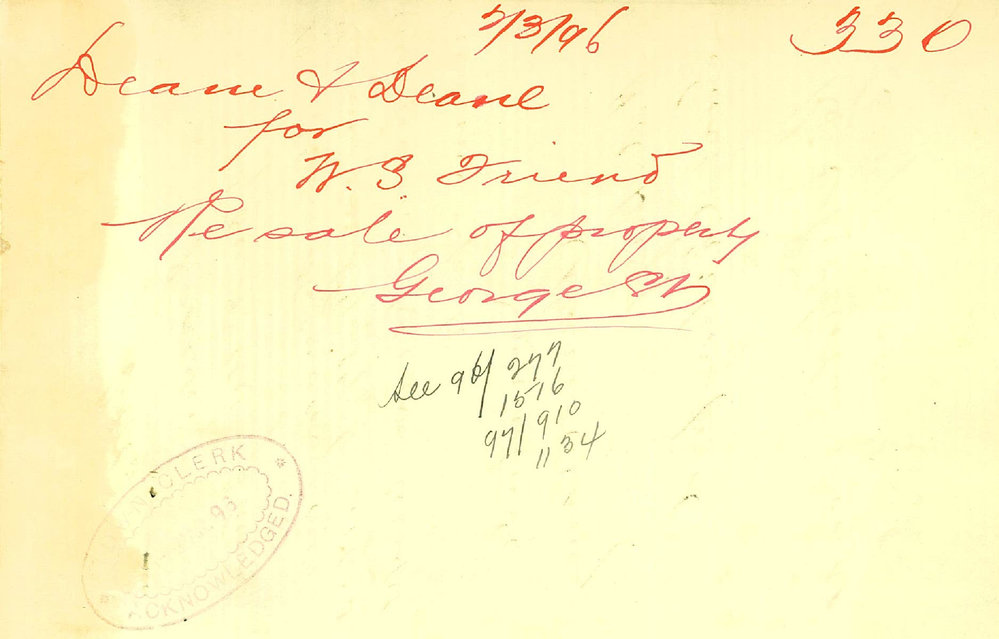 3/3/96 330
Deane & Deane
for
W. S. Friend
Re sale of property
George St.
See 96/277
1516
97/910
1134
CLERK
96
ACKNOWLEDGED.